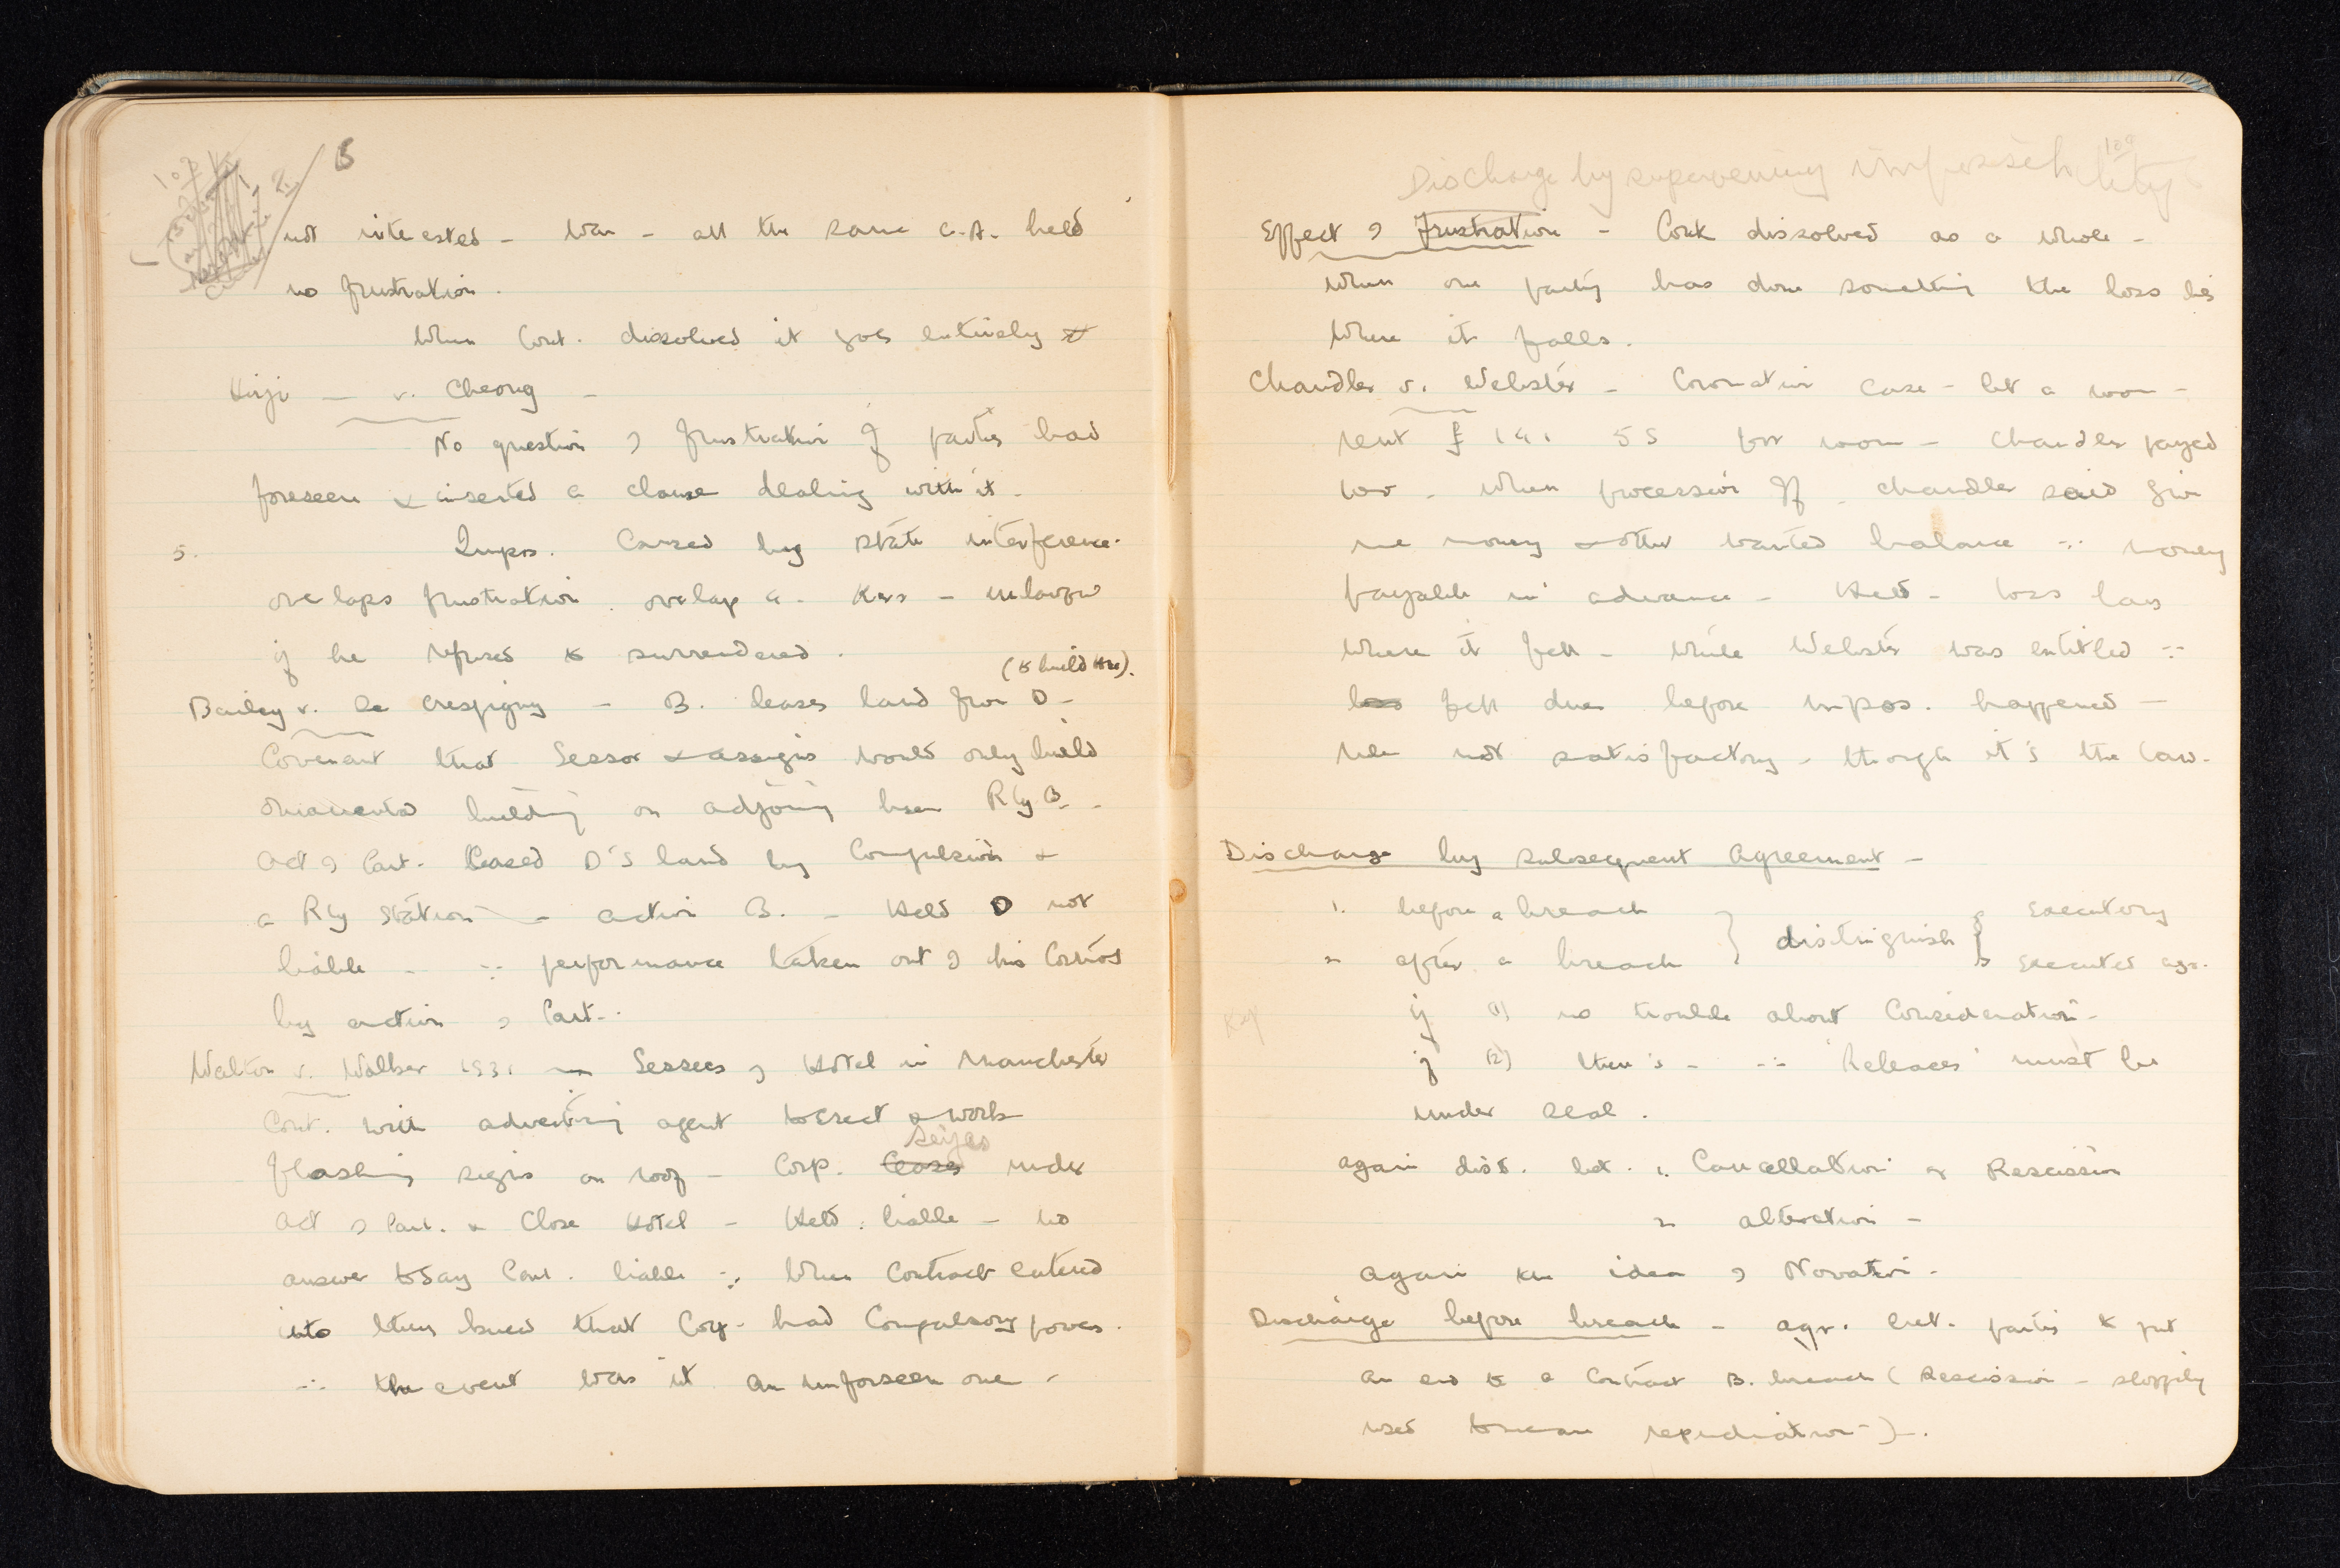 B
not interested - war - all the same C.A. held
no frustration.
When Cont. dissolved it goes entirely
Hirji — v. Cheong -
No question of frustration if parties had
foreseen & inserted a clause dealing with it.
5. Impos. Caused by state interference.
overlaps frustration. overlap
if he refused to surrendered.
(to build tre).
Bailey v. de Crespigny - B. leases land from D -
Covenant that Lessor & assigns would only build
ornamental building on adjoing Rly B. -
Act of Parl. Leased D's land by Compulsion &
a Rly Station - action B. - Held D not
liable - ∵ performance taken out of his
by action of Parl.
Walton v. Walker 1931 - Lessees of Hotel in Manchester
Cont. with advertising agent to erect & work
seizes
flashing signs on roof - Corp. leases under
Act of Parl. & Close Hotel - Held: liable - no
answer to say Cont. liable ∵ When Contract entered
into they knew that Corp. had Compulsory powers.
∴ the event was it an unforseen one -
109
Discharge by supervening impossibility
Effect of Frustration - Cont dissolved as a whole -
When one party has done something the loss lies
where it falls.
Chandler v. Webster - Coronation Case - let a room -
rent £ 141 5s for room - Chandler payed
100 - When procession off - Chandler said give
me money & other wanted balance ∵ money
payable in advance - Held - loss lays
where it fell - while Webster was entitled ∵
loss fell due before impos. happened -
rule not satisfactory - though it's the law.
Discharge by subsequent Agreement -
1. before a breach } distinguish { Executory
2. after a breach Executed agr.
if (1) no trouble about Consideration -
if (2) there is - ∴ 'Releases' must be
under seal.
again dist. bet. 1. Cancellation or Rescission
2. alteration -
again the idea of Novation -
Discharge before breach - agr. bet. parties to put
an end to a Contract B. breach (Rescission - sloppily
used to mean repudiation -).